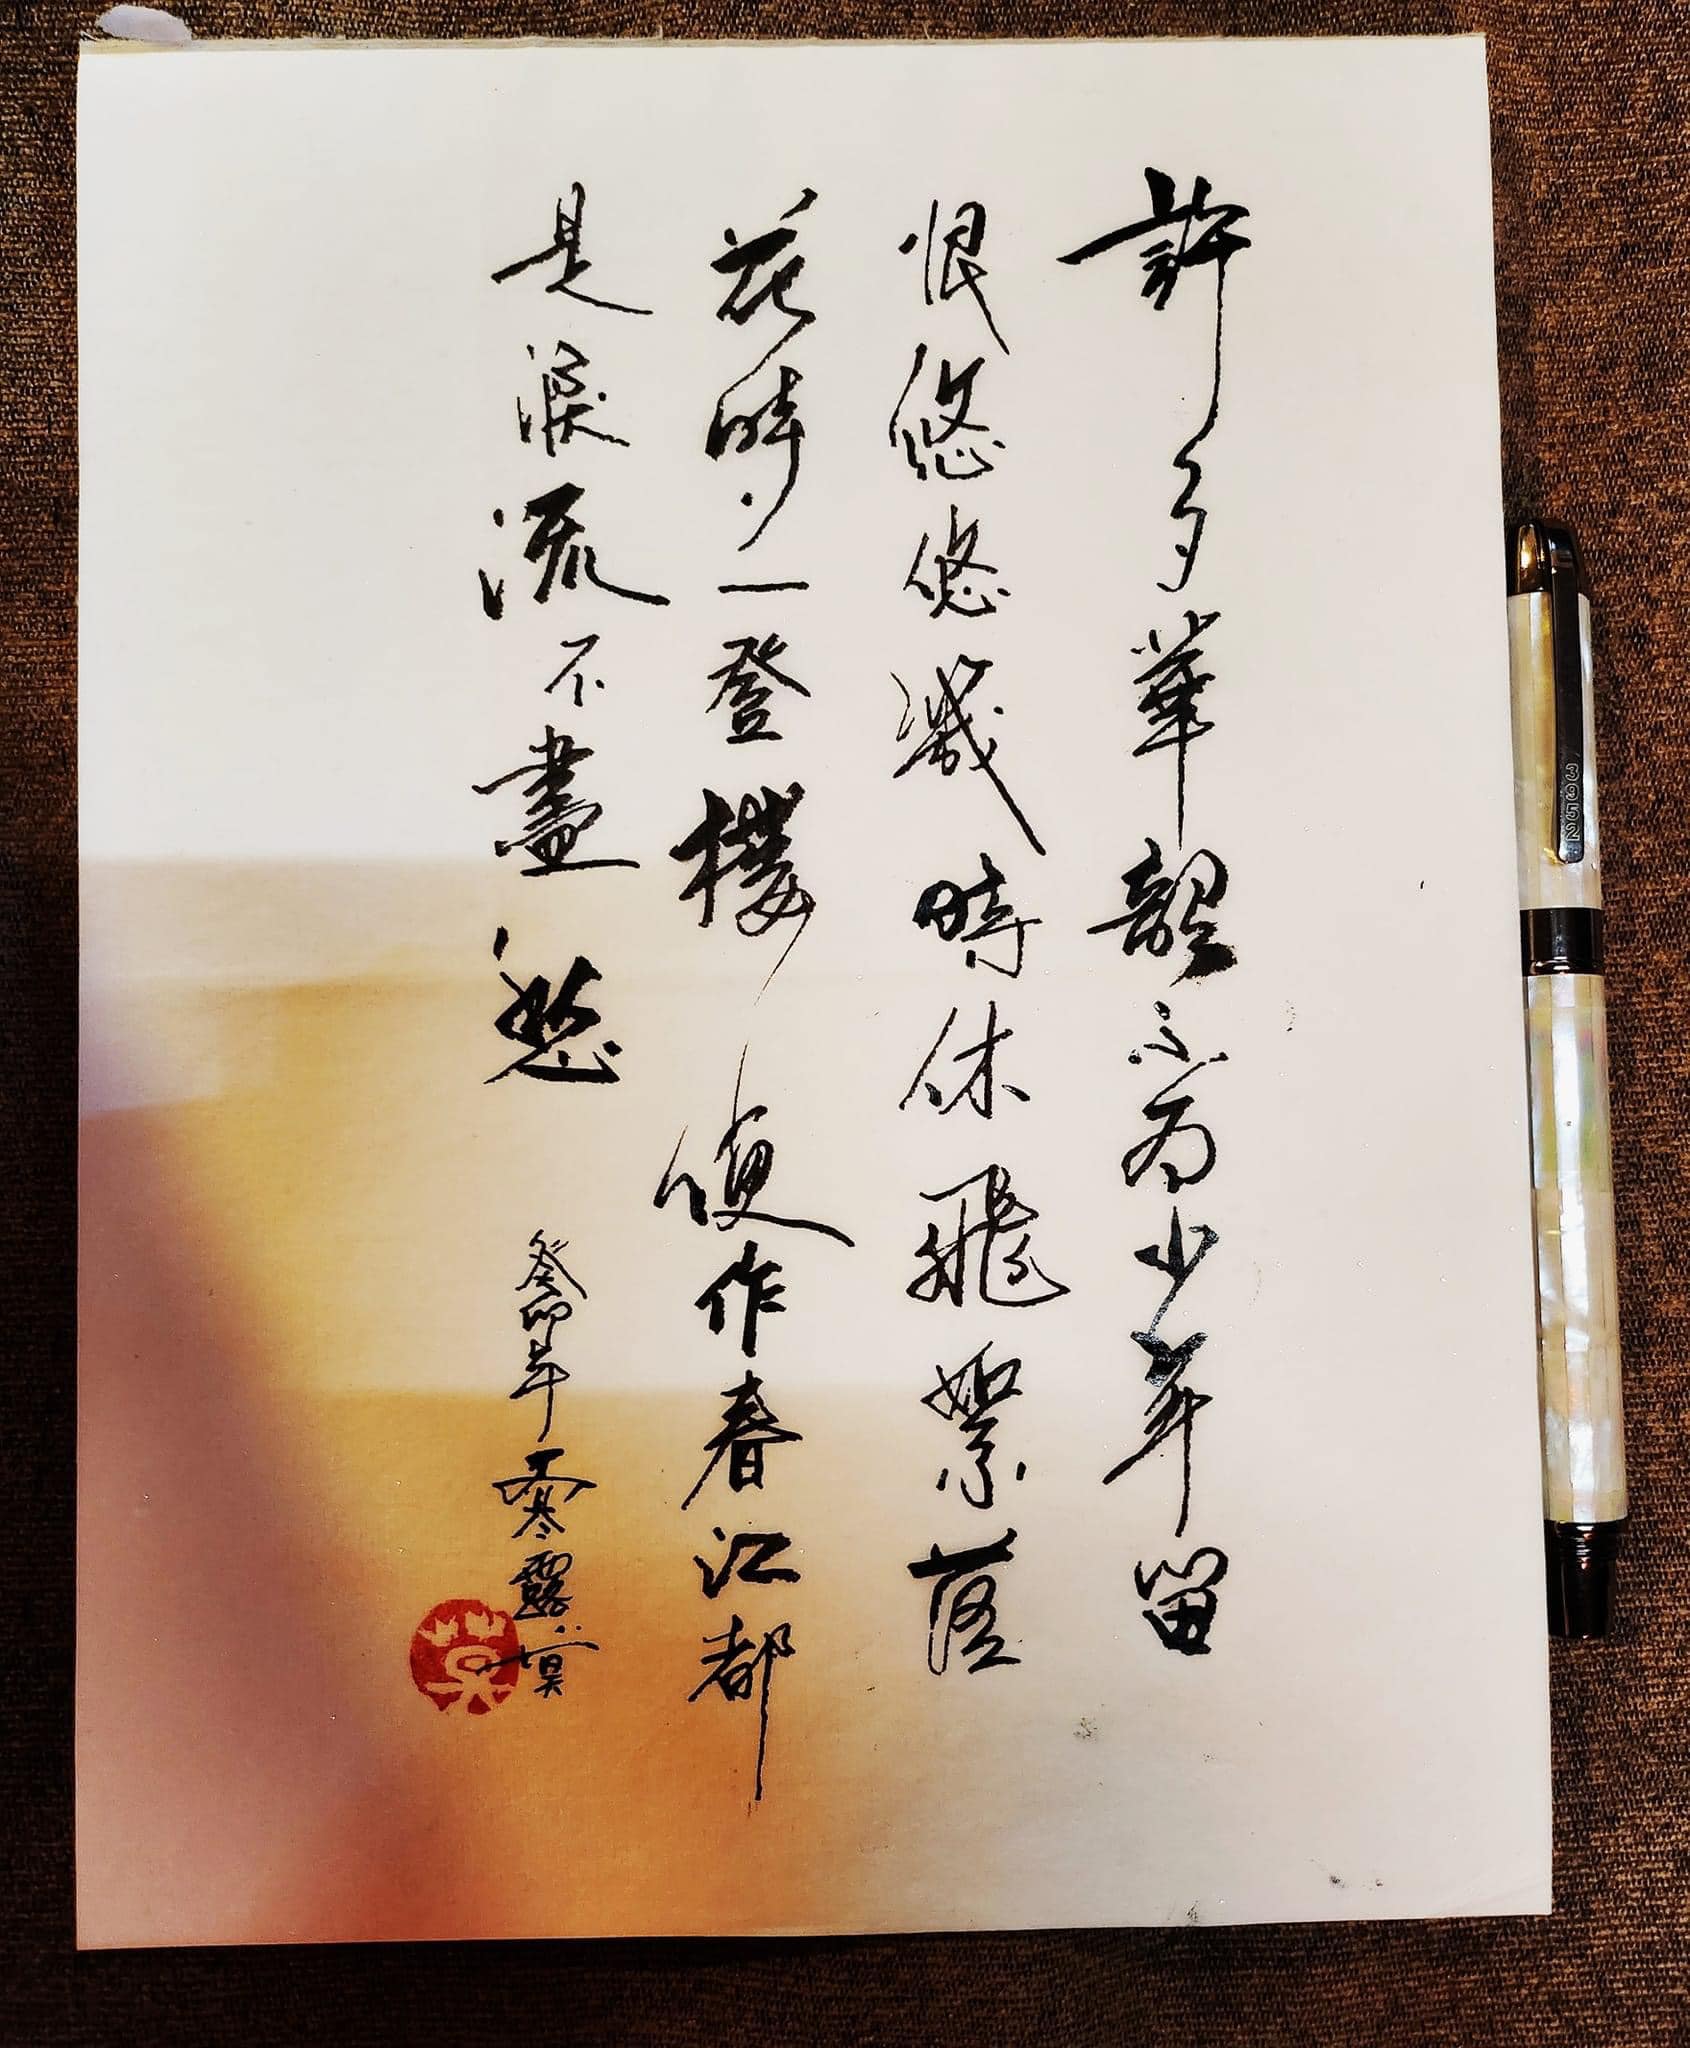 許多華韶不为少年留
恨悠悠幾時休飛絮落
花時候一登樓便作春江都
是淚流不盡愁
癸卯年寒露
3952